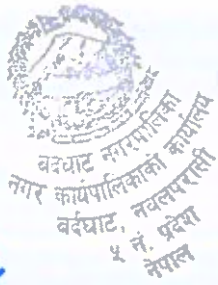 बर्दघाट नगरपालिका
नगर कार्यपालिकाको कार्यालय
बर्दघाट, नवलपरासी
प्रदेश
नेपाल